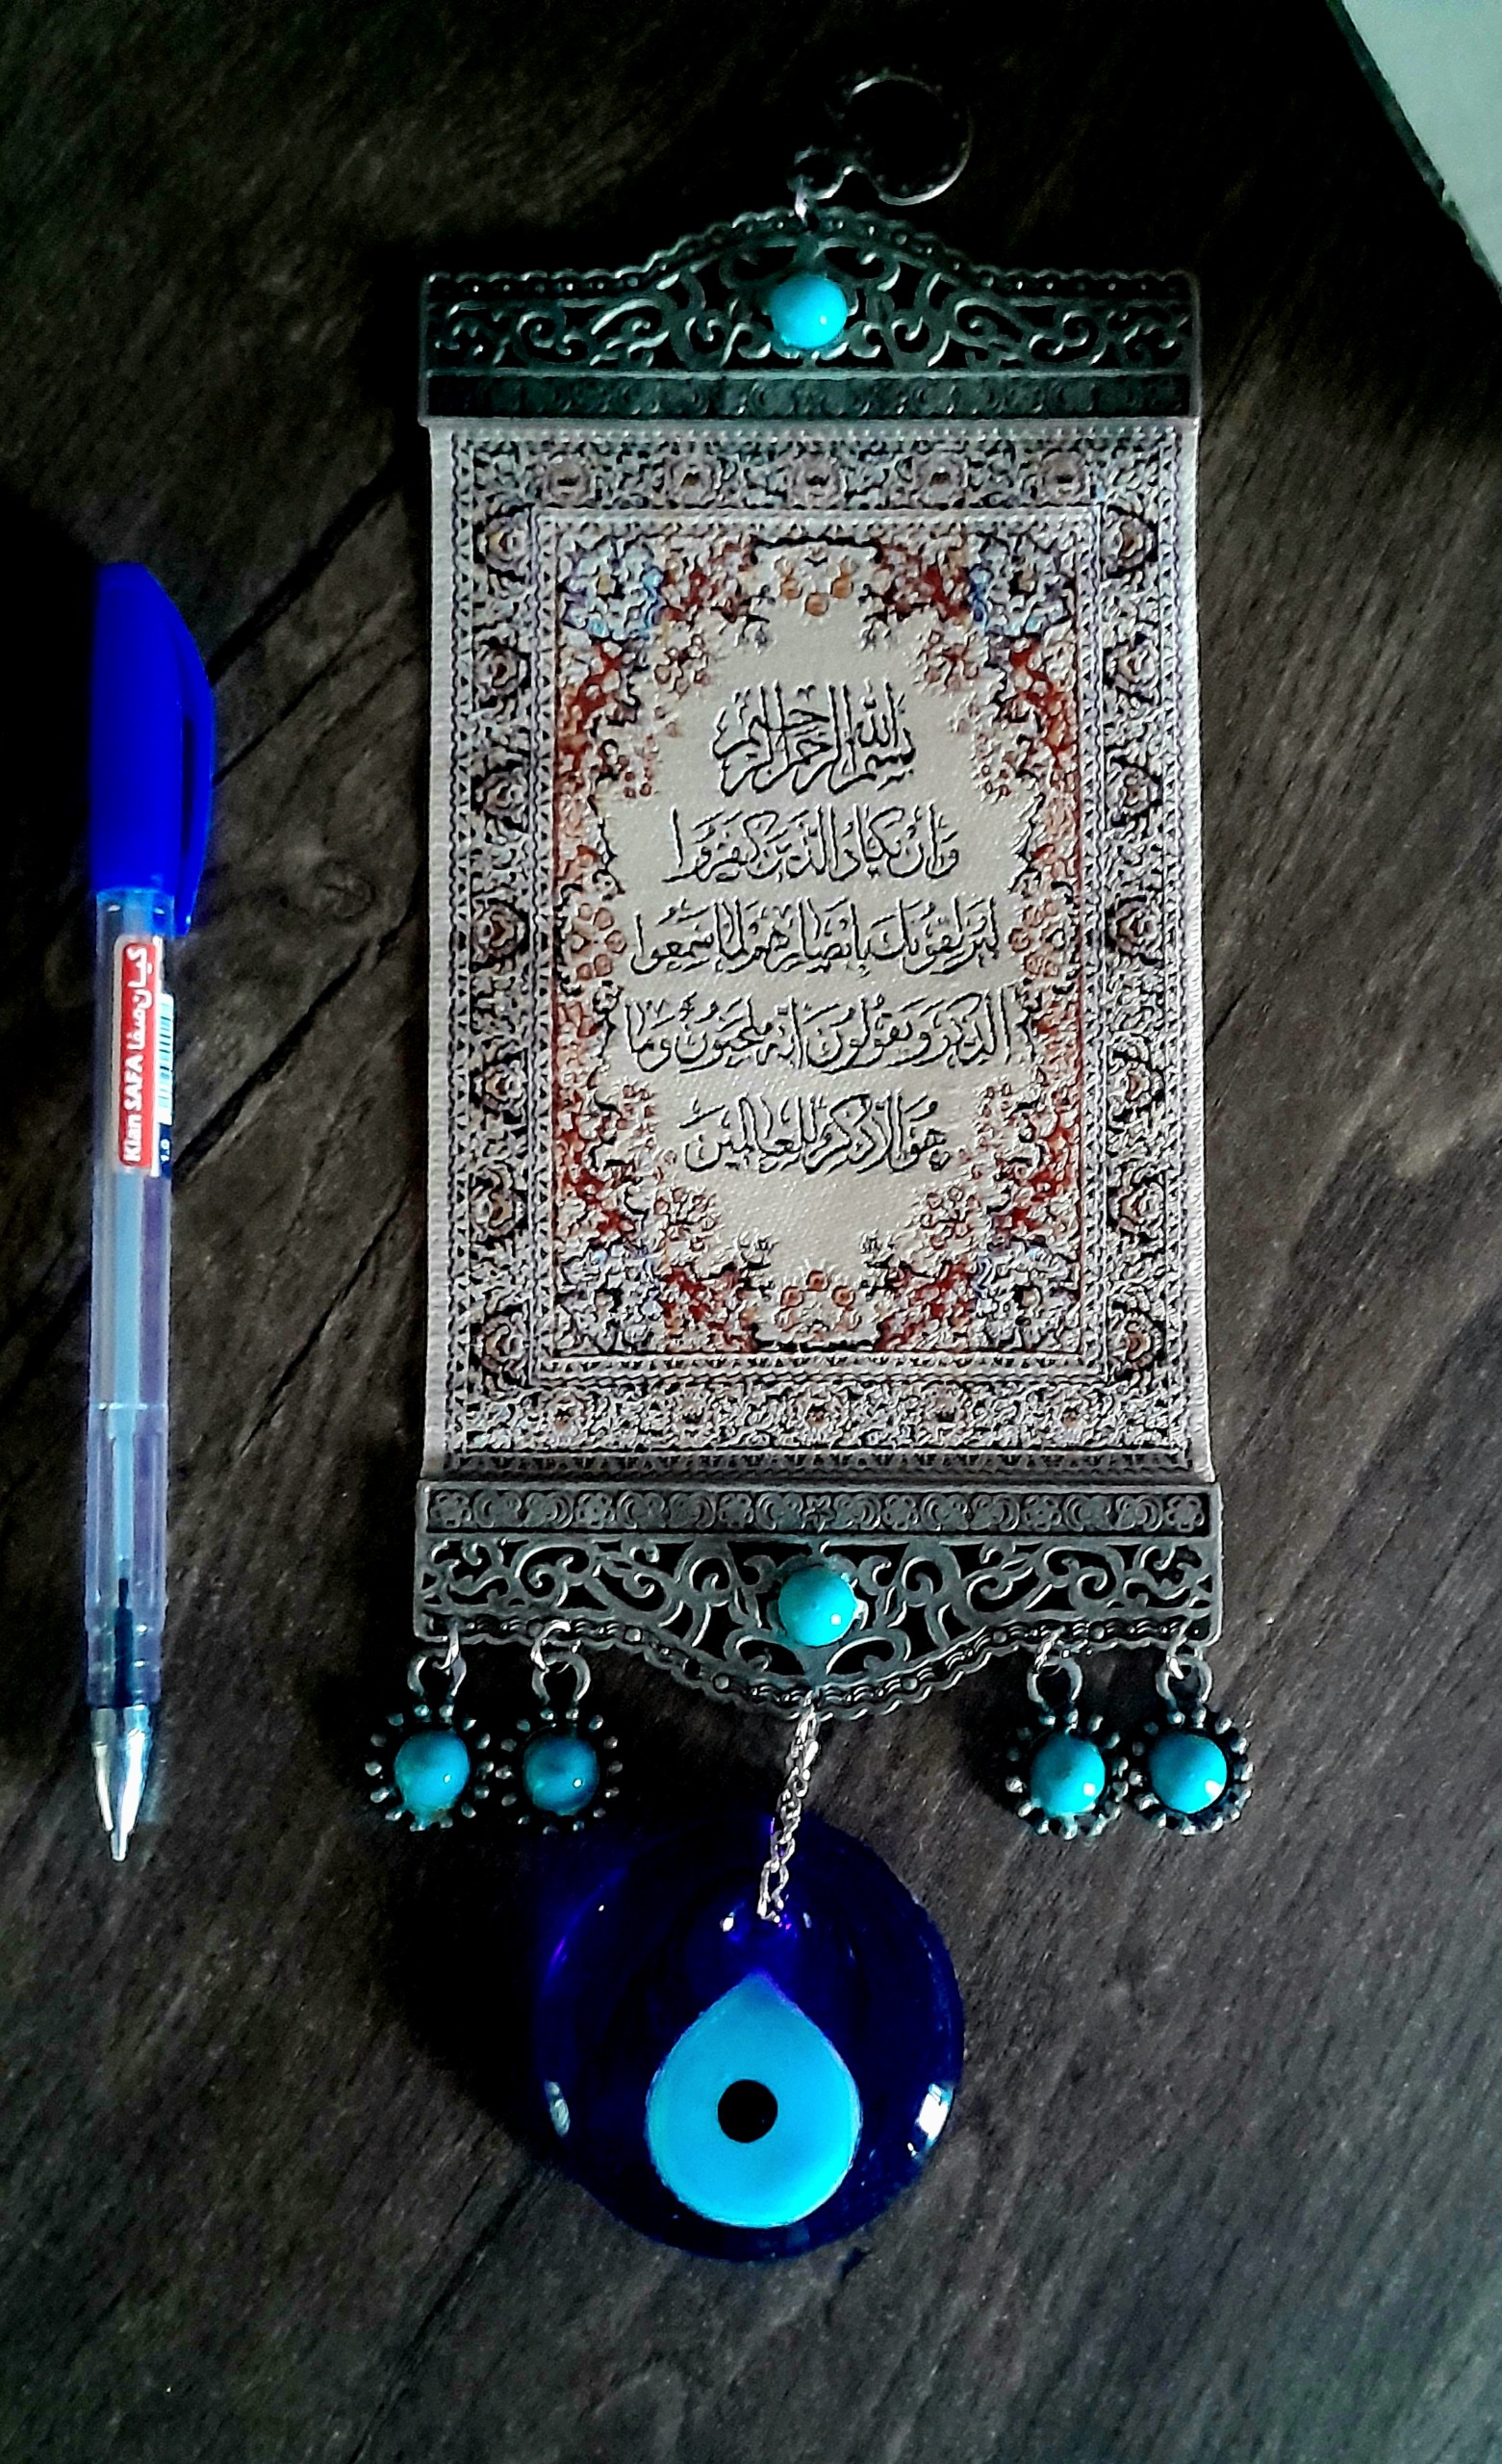 بسم الله الرحمن الرحيم
وَإن يَكادُ الَّذينَ كَفَروا
لَيُزلِقونَكَ بِأبصارِهِم لَمّا سَمِعوا
الذِّكرَ وَيَقولونَ إنَّهُ لَمَجنونٌ وَما
هُوَ إلّا ذِكرٌ لِلعالَمينَ
Kian SAFA کیان صفا
1.0